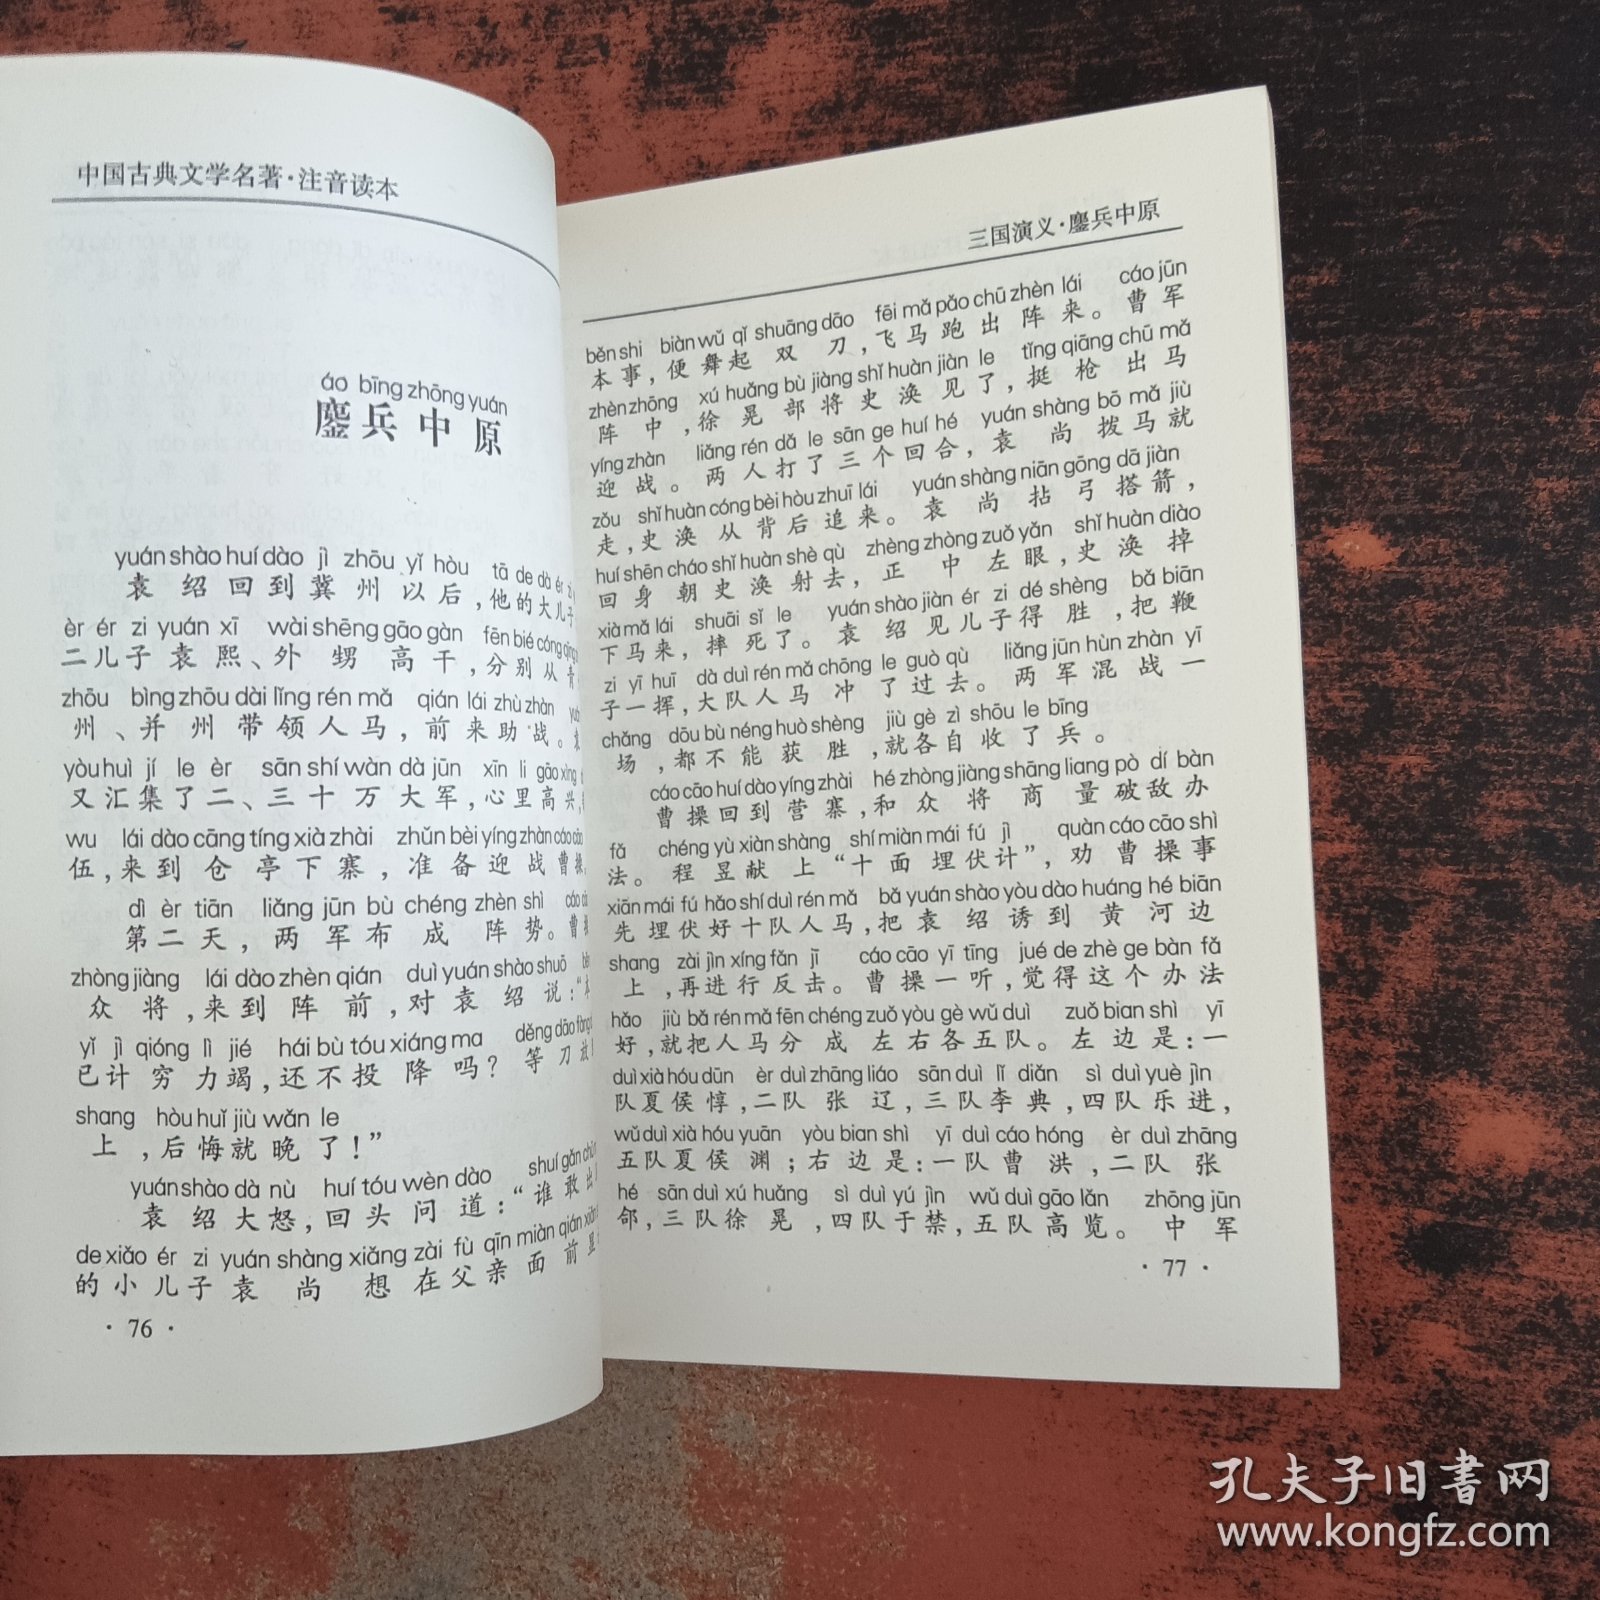 中国古典文学名著·注音读本
áo bīng zhōng yuán
鏖兵中原
yuán shào huí dào jì zhōu yǐ hòu tā de dà ér
袁绍回到冀州以后,他的大儿子
èr ér zi yuán xī wài shēng gāo gàn fēn bié cóng qīng
二儿子袁熙、外甥高干,分别从青
zhōu bìng zhōu dài lǐng rén mǎ qián lái zhù zhàn
州、并州带领人马,前来助战。
yòu huì jí le èr sān shí wàn dà jūn xīn li gāo xìng
又汇集了二、三十万大军,心里高兴,
wu lái dào cāng tíng xià zhài zhǔn bèi yíng zhàn cáo cāo
伍,来到仓亭下寨,准备迎战曹操。
dì èr tiān liǎng jūn bù chéng zhèn shì cáo
第二天,两军布成阵势。曹
zhòng jiàng lái dào zhèn qián duì yuán shào shuō
众将,来到阵前,对袁绍说:“
yǐ jì qióng lì jié hái bù tóu xiáng ma děng dāo fàng
已计穷力竭,还不投降吗?等刀放
shang hòu huǐ jiù wǎn le
上,后悔就晚了!”
yuán shào dà nù huí tóu wèn dào shuí gǎn chū
袁绍大怒,回头问道:“谁敢出
de xiǎo ér zi yuán shàng xiǎng zài fù qīn miàn qián xiǎn
的小儿子袁尚想在父亲面前显
·76·
三国演义·鏖兵中原
běn shi biàn wǔ qǐ shuāng dāo fēi mǎ pǎo chū zhèn lái cáo jūn
本事,便舞起双刀,飞马跑出阵来。曹军
zhèn zhōng xú huǎng bù jiàng shǐ huàn jiàn le tǐng qiāng chū mǎ
阵中,徐晃部将史涣见了,挺枪出马
yíng zhàn liǎng rén dǎ le sān ge huí hé yuán shàng bō mǎ jiù
迎战。两人打了三个回合,袁尚拨马就
zǒu shǐ huàn cóng bèi hòu zhuī lái yuán shàng niān gōng dā jiàn
走,史涣从背后追来。袁尚拈弓搭箭,
huí shēn cháo shǐ huàn shè qù zhèng zhòng zuǒ yǎn shǐ huàn diào
回身朝史涣射去,正中左眼,史涣掉
xià mǎ lái shuāi sǐ le yuán shào jiàn ér zi dé shèng bǎ biān
下马来,摔死了。袁绍见儿子得胜,把鞭
zi yī huī dà duì rén mǎ chōng le guò qù liǎng jūn hùn zhàn yī
子一挥,大队人马冲了过去。两军混战一
chǎng dōu bù néng huò shèng jiù gè zì shōu le bīng
场,都不能获胜,就各自收了兵。
cáo cāo huí dào yíng zhài hé zhòng jiàng shāng liang pò dí bàn
曹操回到营寨,和众将商量破敌办
fǎ chéng yù xiàn shàng shí miàn mái fú jì quàn cáo cāo shì
法。程昱献上“十面埋伏计”,劝曹操事
xiān mái fú hǎo shí duì rén mǎ bǎ yuán shào yòu dào huáng hé biān
先埋伏好十队人马,把袁绍诱到黄河边
shang zài jìn xíng fǎn jī cáo cāo yī tīng jué de zhè ge bàn fǎ
上,再进行反击。曹操一听,觉得这个办法
hǎo jiù bǎ rén mǎ fēn chéng zuǒ yòu gè wǔ duì zuǒ bian shì yī
好,就把人马分成左右各五队。左边是:一
duì xià hóu dūn èr duì zhāng liáo sān duì lǐ diǎn sì duì yuè jìn
队夏侯惇,二队张辽,三队李典,四队乐进,
wǔ duì xià hóu yuān yòu bian shì yī duì cáo hóng èr duì zhāng
五队夏侯渊;右边是:一队曹洪,二队张
hé sān duì xú huǎng sì duì yú jìn wǔ duì gāo lǎn zhōng jūn
郃,三队徐晃,四队于禁,五队高览。中军
·77·
孔夫子旧书网
www.kongfz.com